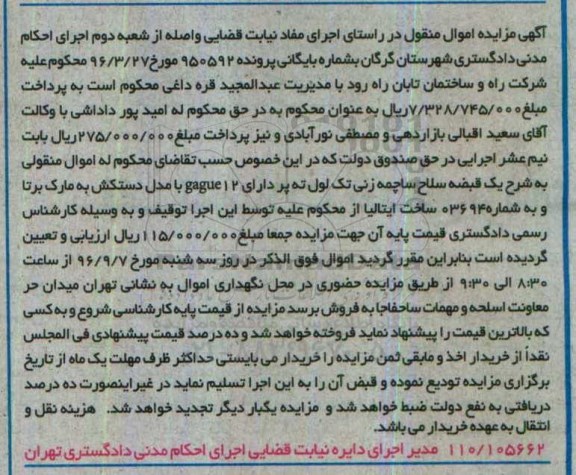 آگهی مزایده اموال منقول در راستای اجرای مفاد نیابت قضایی واصله از شعبه دوم اجرای احکام
مدنی دادگستری شهرستان گرگان بشماره بایگانی پرونده ۹۵۰۵۹۲ مورخ ۹۶/۳/۲۷ محکوم علیه
شرکت راه و ساختمان تابان راه رود با مدیریت عبدالمجید قره داغی محکوم است به پرداخت
مبلغ ۷/۳۲۸/۷۴۵/۰۰۰ ریال به عنوان محکوم به در حق محکوم له امید پور داداشی با وکالت
آقای سعید اقبالی بازاردهی و مصطفی نورآبادی و نیز پرداخت مبلغ ۲۷۵/۰۰۰/۰۰۰ ریال بابت
نیم عشر اجرایی در حق صندوق دولت که در این خصوص حسب تقاضای محکوم له اموال منقولی
به شرح یک قبضه سلاح ساچمه زنی تک لول ته پر دارای gague ۱۲ با مدل دستکش به مارک برتا
و به شماره ۰۳۶۹۴ ساخت ایتالیا از محکوم علیه توسط این اجرا توقیف و به وسیله کارشناس
رسمی دادگستری قیمت پایه آن جهت مزایده جمعا مبلغ ۱۱۵/۰۰۰/۰۰۰ ریال ارزیابی و تعیین
گردیده است بنابراین مقرر گردید اموال فوق الذکر در روز سه شنبه مورخ ۹۶/۹/۷ از ساعت
۸:۳۰ الی ۹:۳۰ از طریق مزایده حضوری در محل نگهداری اموال به نشانی تهران میدان حر
معاونت اسلحه و مهمات ساحفاجا به فروش برسد مزایده از قیمت پایه کارشناسی شروع و به کسی
که بالاترین قیمت را پیشنهاد نماید فروخته خواهد شد و ده درصد قیمت پیشنهادی فی المجلس
نقداً از خریدار اخذ و مابقی ثمن مزایده را خریدار می بایستی حداکثر ظرف مهلت یک ماه از تاریخ
برگزاری مزایده تودیع نموده و قبض آن را به این اجرا تسلیم نماید در غیر اینصورت ده درصد
دریافتی به نفع دولت ضبط خواهد شد و مزایده یکبار دیگر تجدید خواهد شد. هزینه نقل و
انتقال به عهده خریدار می باشد.
۱۱۰/۱۰۵۶۶۲ مدیر اجرای دایره نیابت قضایی اجرای احکام مدنی دادگستری تهران